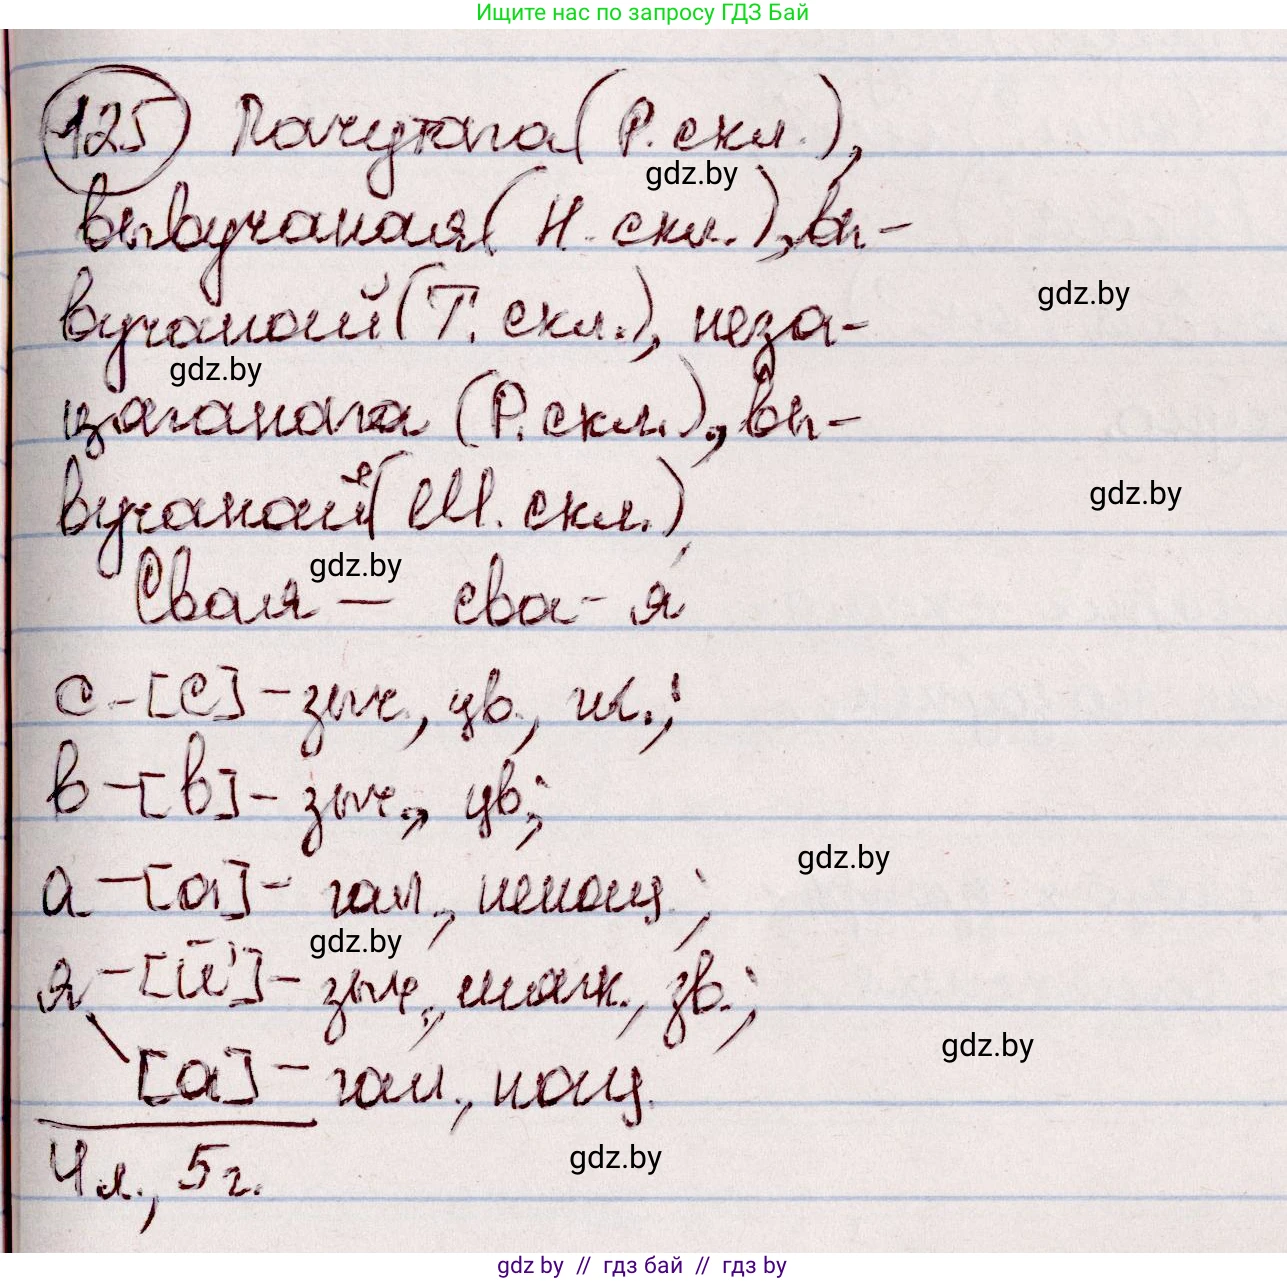 Ищите нас по запросу ГДЗ Бай
125 Пачутага (Р. скл.),
gdz.by
вывучаная (Н. скл.), вы-
gdz.by
вучанай (Т. скл.), неза-
gdz.by
цяганага (Р. скл.), вы-
gdz.by
вучанай (М. скл.)
gdz.by
Свая – сва-я
с - [с] - зыч., цв.,
в - [в] - зыч., цв.;
gdz.by
а - [а] - гал., ненац.;
gdz.by
я - [й'] - зыч., мягк., зв.;
gdz.by
[а] - гал., нац.
gdz.by
4 л., 5 г.
gdz.by // гдз бай // гдз by